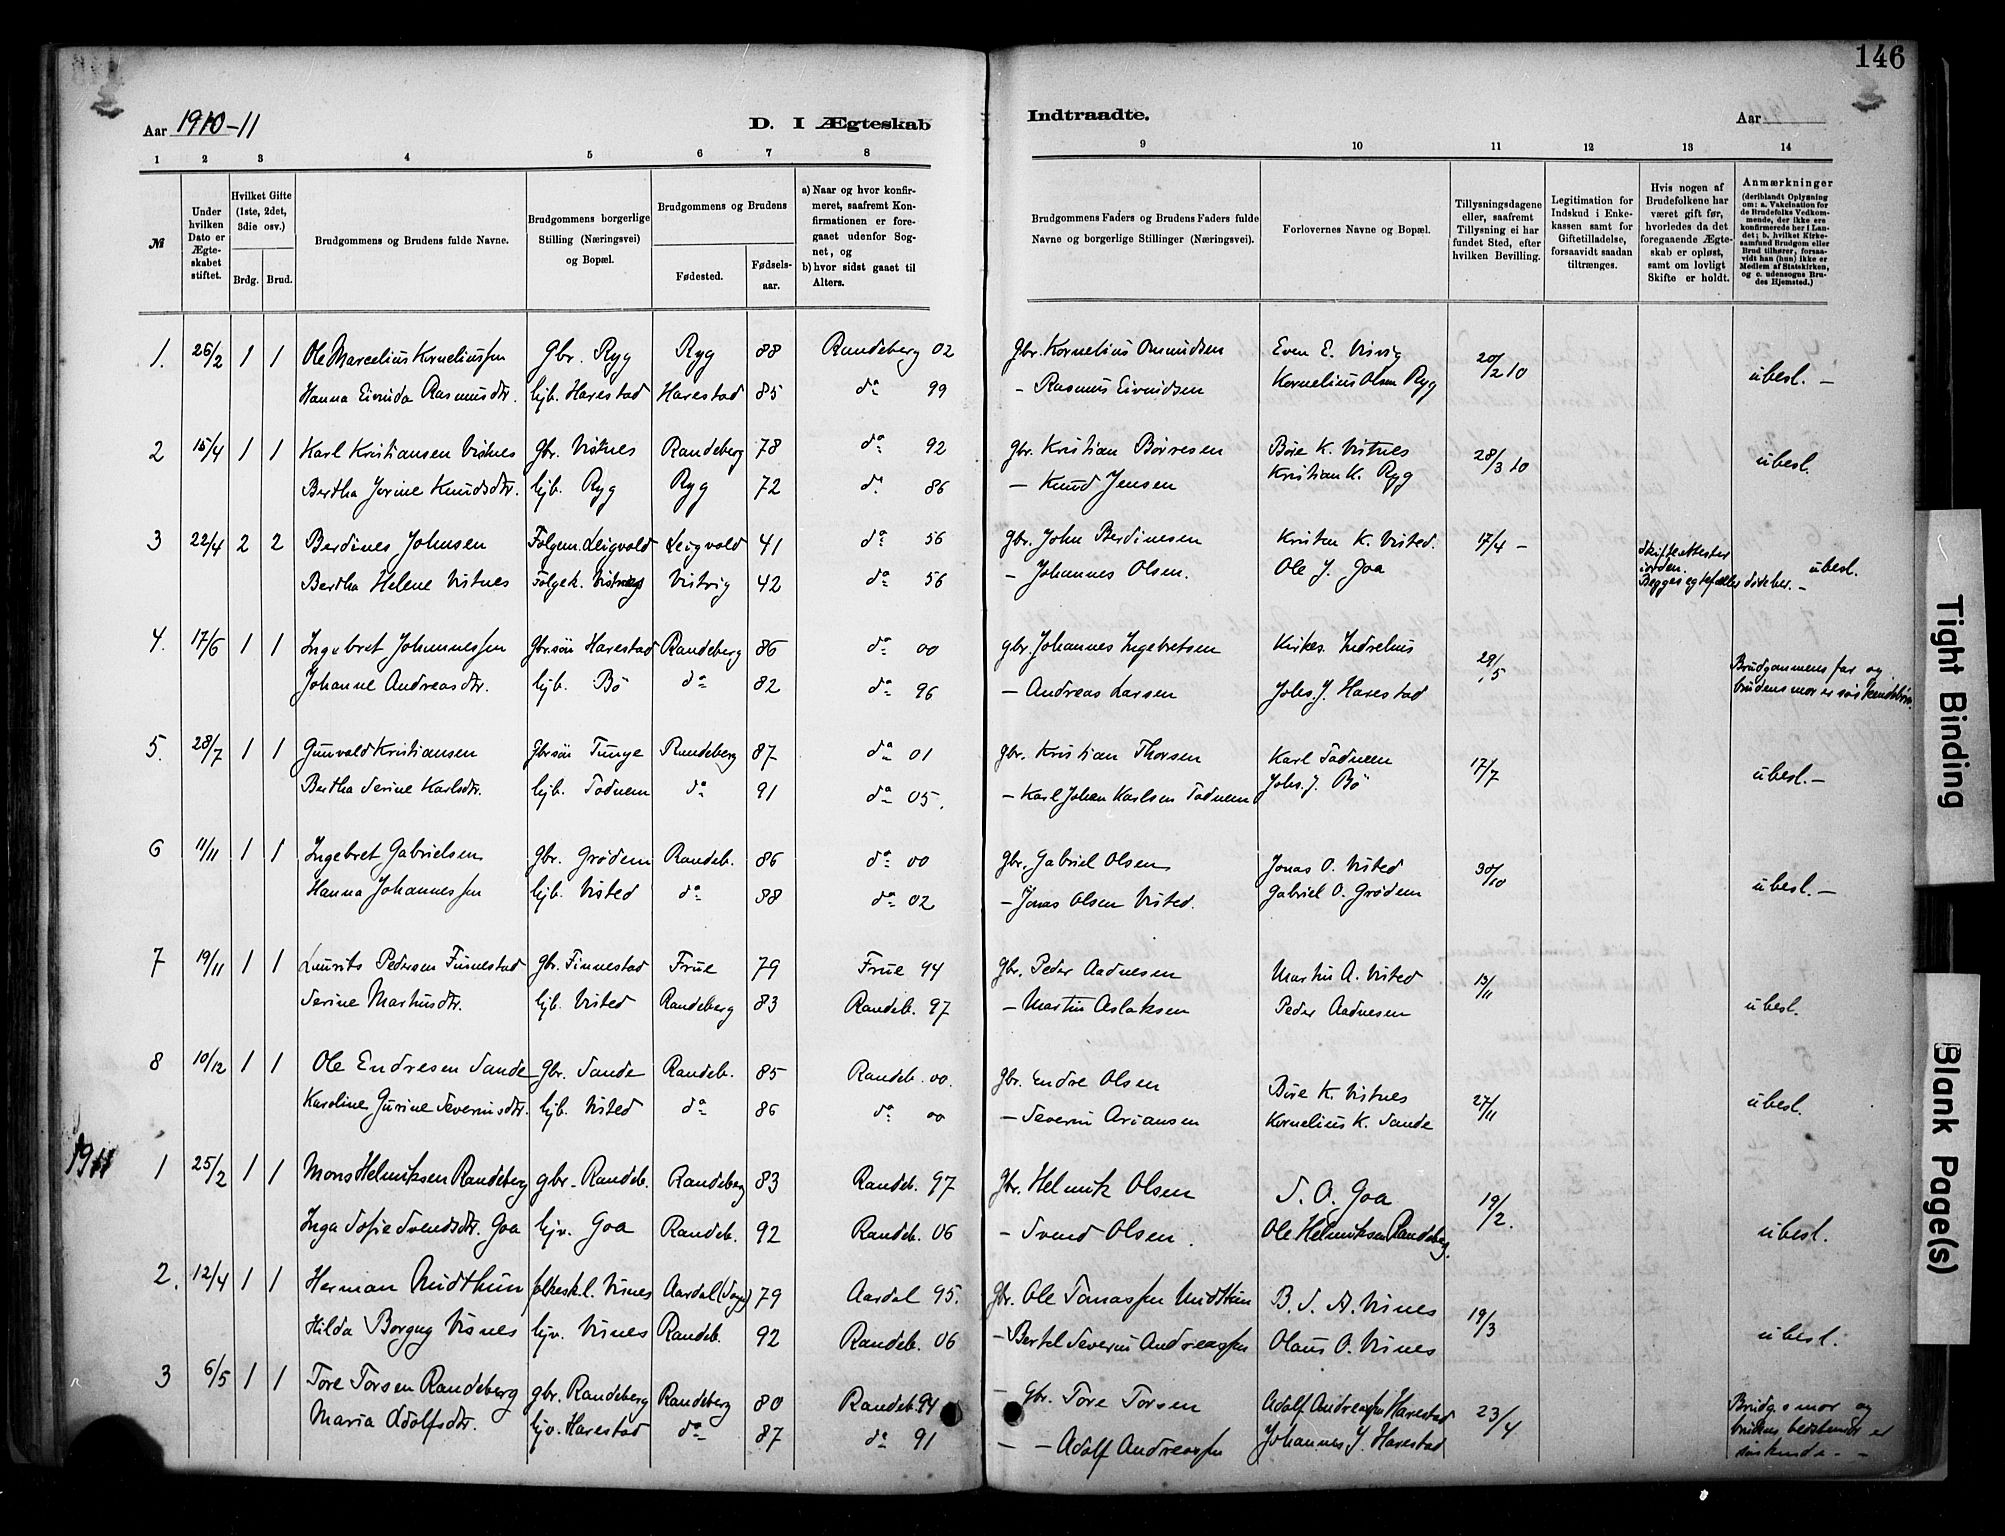 146
Aar 1910-11
D. I Ægteskab Indtraadte.
Aar
1 2 3 4 5 6 7 8 9 10 11 12 13 14
№
Under hvilken Dato er Ægteskabet stiftet.
Hvilket Gifte (1ste, 2det, 3die osv.)
Brdg. Brud.
Brudgommens og Brudens fulde Navne.
Brudgommens borgerlige Stilling (Næringsvei) og Bopæl.
Brudgommens og Brudens
Fødested.
Fødselsaar.
a) Naar og hvor konfirmeret, saafremt Konfirmationen er foregaaet udenfor Sognet, og
b) hvor sidst gaaet til Alters.
Brudgommens Faders og Brudens Faders fulde Navne og borgerlige Stillinger (Næringsvei).
Forlovernes Navne og Bopæl.
Tillysningsdagene eller, saafremt Tillysning ei har fundet Sted, efter hvilken Bevilling.
Legitimation for Indskud i Enkekassen samt for Giftetilladelse, forsaavidt saadan tiltrænges.
Hvis nogen af Brudefolkene har været gift før, hvorledes da det foregaaende Ægteskab er opløst, samt om lovligt Skifte er holdt.
Anmærkninger (deriblandt Oplysning om: a. Vakcination for de Brudefolks Vedkommende, der ikke ere konfirmerede her i Landet; b. hvilket Kirkesamfund Brudgom eller Brud tilhører, forsaavidt han (hun) ikke er Medlem af Statskirken, og c. udensogns Brudes Hjemsted.)
1. 26/2 1 1 Ole Marcelius Korneliussen Gbr. Ryg Ryg 88 Randeberg 02 gbr. Kornelius Omundsen Even E. Visvig 20/2 10
Hanna Eivinda Rasmusdtr. hjb. Harestad Harestad 85 do 99 - Rasmus Eivindsen Kornelius Olsen Ryg ubesl. -
2 15/4 1 1 Karl Kristiansen Vistnes Gbr. Vistnes Randeberg 78 do 92 gbr. Kristian Børresen Børe K. Vistnes 28/3 10 ubesl.
Bertha Jorine Knudsdtr. hjb. Ryg Ryg 72 do 86 - Knud Jensen Kristian K. Ryg
3 22/4 2 2 Berdines Johnsen Folgem. Leigvold Leigvold 41 do 56 gbr. John Berdinesen Kristen K. Visted. 17/4 - Skifteattester iorden.
Bertha Helene Vistnes Folgek. Vistnes Vistvig 42 do 56 - Johannes Olsen. Ole J. Goa Begges egtefæller døde her. - ubesl.
4. 17/6 1 1 Ingebret Johannessen Gbrsøn Harestad Randeberg 86 do 00 gbr. Johannes Ingebretsen Kirkes. Indrehus 29/5 Brudgommens far og
Johanne Andreasdtr. hjb. Bø do 82 do 96 - Andreas Larsen Johs. J. Harestad brudens mor er søskendebørn.
5. 28/7 1 1 Gunvald Kristiansen Gbrsøn Tunge Randeberg 87 do 01 gbr. Kristian Thorsen Karl Todnem 17/7
Bertha Serine Karlsdtr. hjb. Todnem do 91 do 05. - Karl Johan Karlsen Todnem Johs. J. Bø ubesl. -
6 11/11 1 1 Ingebret Gabrielsen Gbr. Grødem Randeb. 86 do 00 gbr. Gabriel Olsen Jonas O. Visted 30/10
Hanna Johannessen hjb. Visted do 88 do 02 - Jonas Olsen Visted. Gabriel O. Grødem ubesl. -
7 19/11 1 1 Laurits Pedersen Finnestad gbr. Finnestad Frue 79 Frue 94 gbr. Peder Aadnesen Martin A. Visted 13/11
Serine Martinsdtr. hjb. Visted Randeberg 83 Randeb. 97 - Martin Aslaksen Peder Aadnesen ubesl.
8 10/12 1 1 Ole Endresen Sande gbr. Sande Randeb. 85 Randeb. 00. gbr. Endre Olsen Børe K. Vistnes 27/11
Karoline Gurine Severinsdtr. hjb. Visted do 86 do 00 - Severin Ariansen Kornelius K. Sande ubesl.
1911
1 25/2 1 1 Mons Helmiksen Randeberg gbr. Randeb. Randeberg 83 Randeb. 97 gbr. Helmik Olsen S. O. Goa 19/2.
Inga Sofie Svendsdtr. Goa hjv. Goa Randeb. 92 Randeb. 06 - Svend Olsen. Ole Helmiksen Randeberg. ubesl.
2. 12/4 1 1 Herman Midthun folkeskl. Visnes Aardal (Sogn) 79 Aardal 95. gbr. Ole Tomassen Midthun B. S. A. Visnes 19/3
Hilda Borgny Visnes hjv. Visnes Randeb. 92 Randeb. 06 - Bertel Severin Andreassen Olaus O. Visnes ubesl.
3 6/5 1 1 Tore Torsen Randeberg gbr. Randeberg Randeberg 80 Randeb. 94 - gbr. Tore Torsen Adolf Andreassen Harestad 23/4 Brudg.s mor og
Maria Adolfsdtr. hjv. Harestad do 87 do 91 - - Adolf Andreassen Johannes J. Harestad er søskende. -
Tight Binding
Blank Page(s)